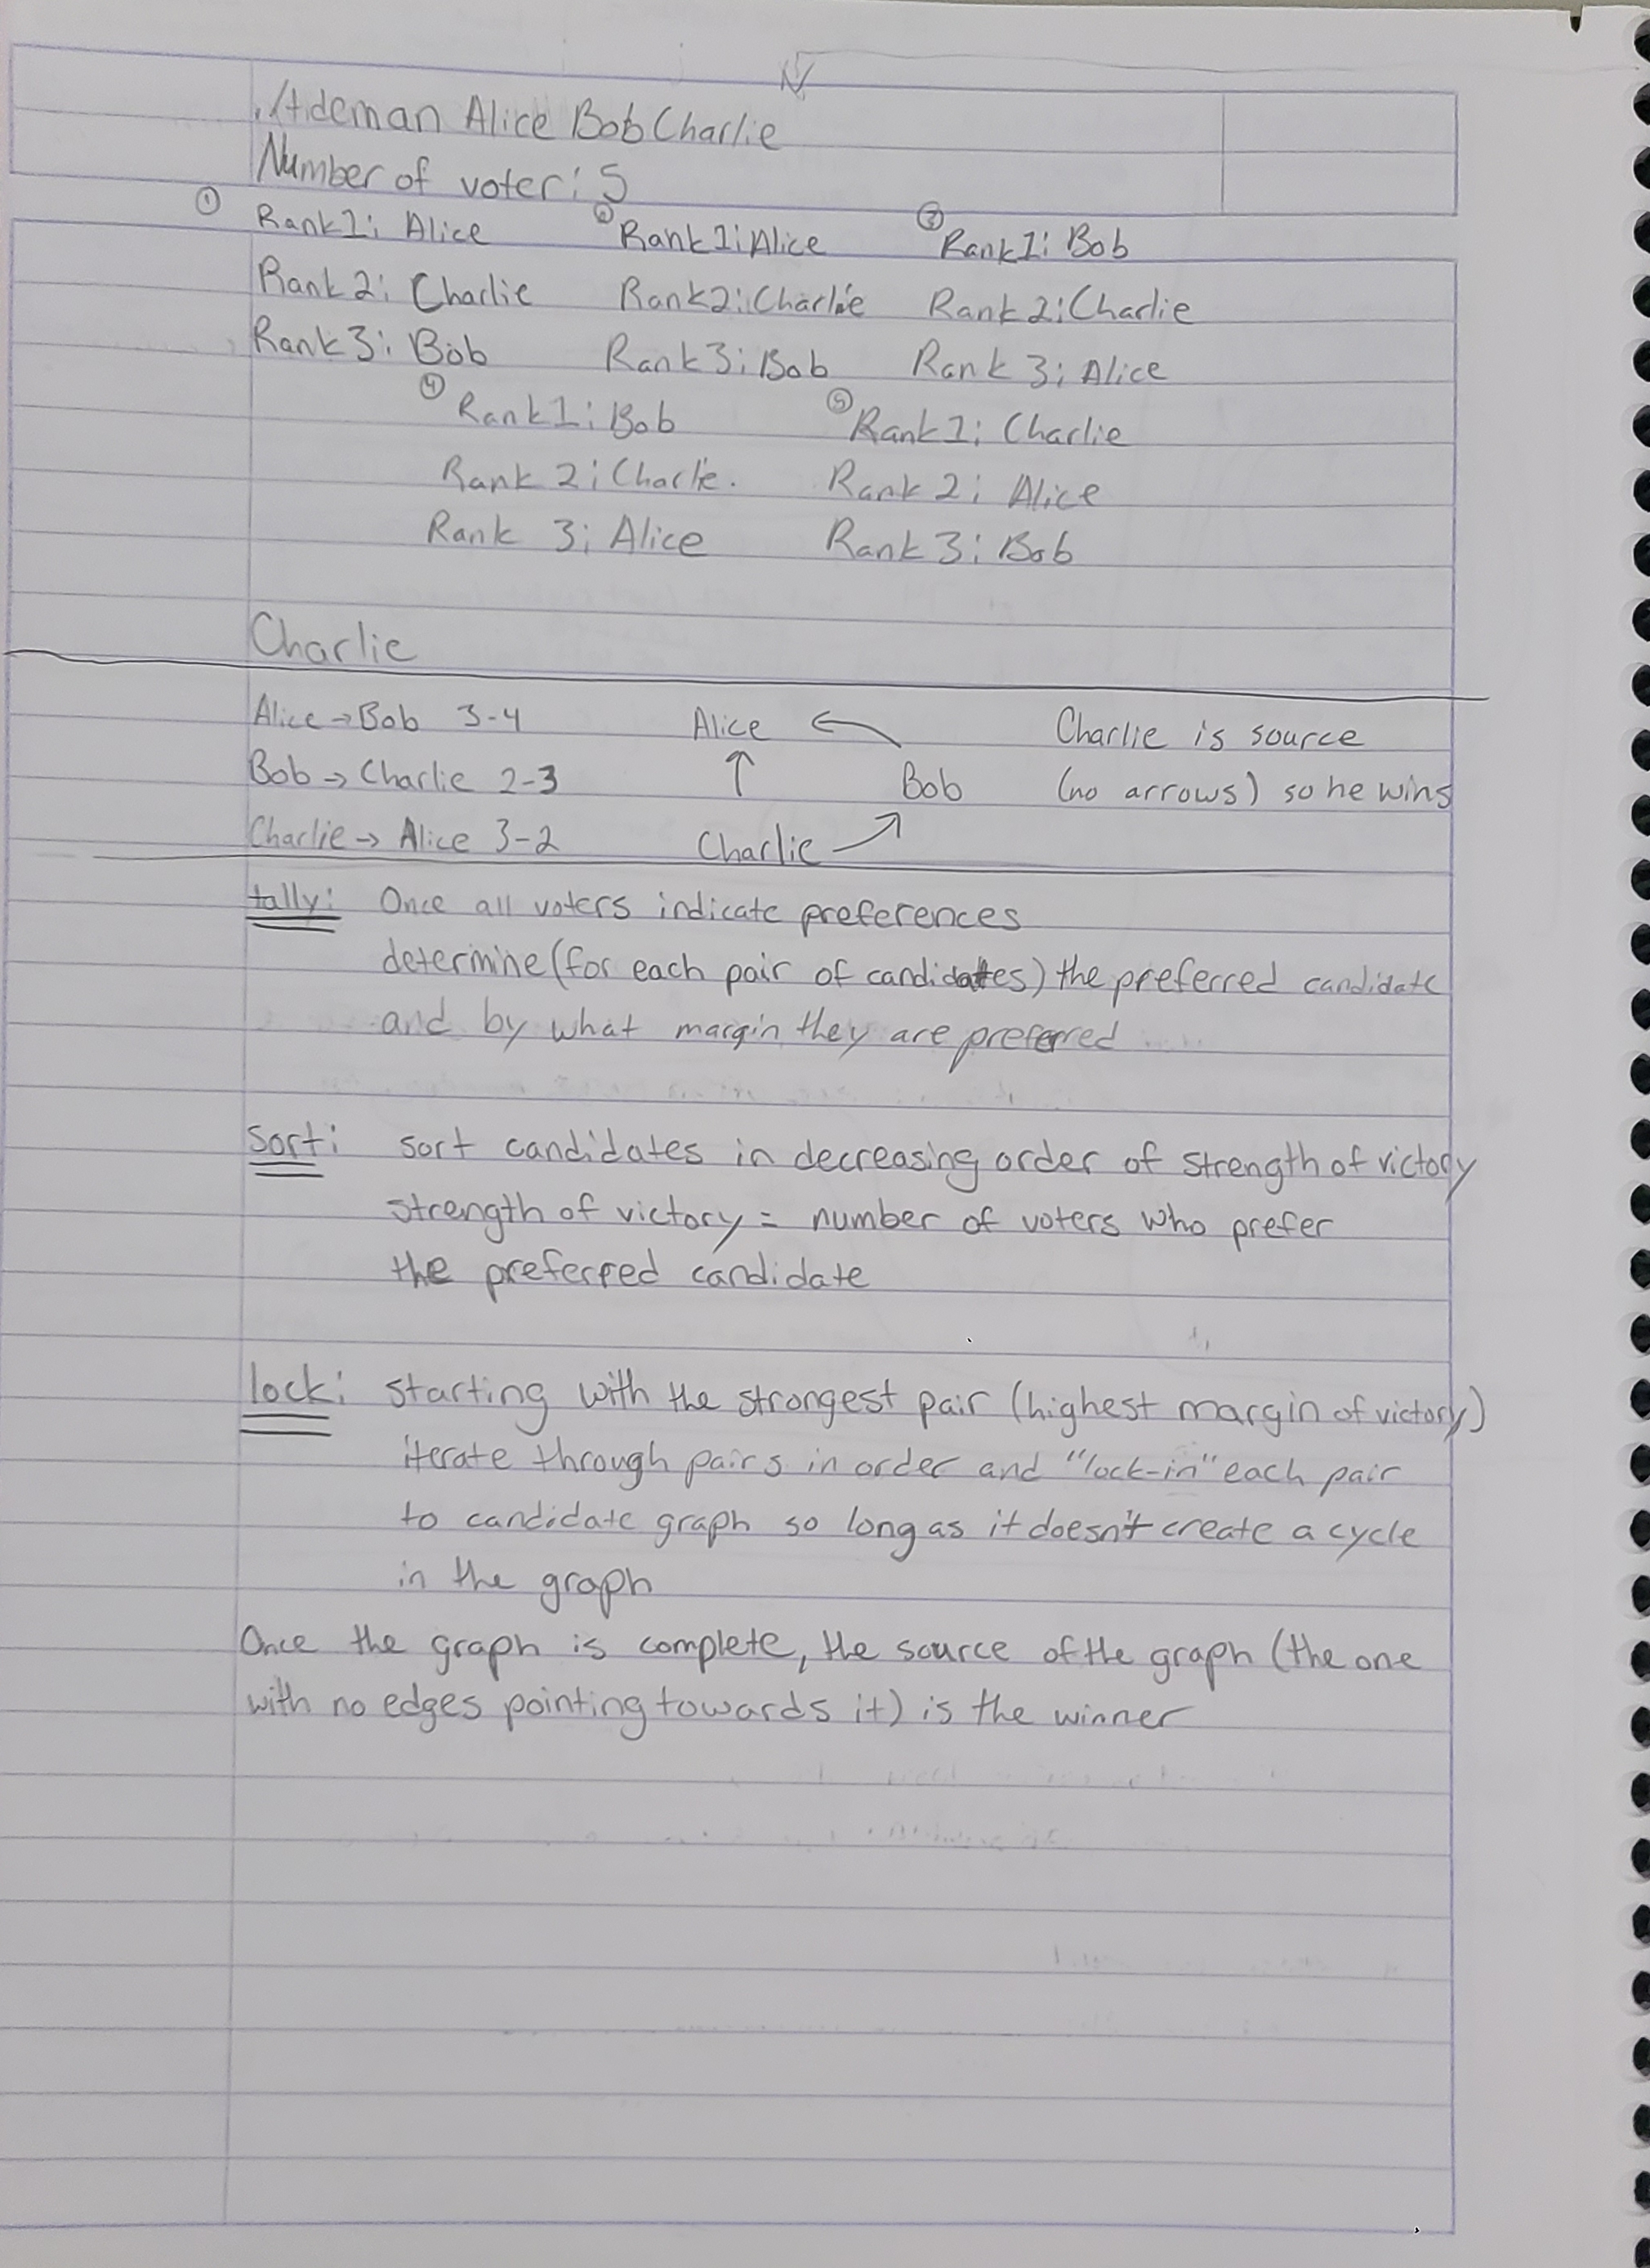 ./tideman Alice Bob Charlie
Number of voter: 5
① Rank 1: Alice ② Rank 1: Alice ③ Rank 1: Bob
Rank 2: Charlie Rank 2: Charlie Rank 2: Charlie
Rank 3: Bob Rank 3: Bob Rank 3: Alice
④ Rank 1: Bob ⑤ Rank 1: Charlie
Rank 2: Charlie. Rank 2: Alice
Rank 3: Alice Rank 3: Bob
Charlie
Alice → Bob 3-4 Alice ← Charlie is source
Bob → Charlie 2-3 ↑ Bob (no arrows) so he wins
Charlie → Alice 3-2 Charlie ↗
tally: Once all voters indicate preferences
determine (for each pair of candidates) the preferred candidate
and by what margin they are preferred
sort: sort candidates in decreasing order of strength of victory
strength of victory = number of voters who prefer
the preferred candidate
lock: starting with the strongest pair (highest margin of victory)
iterate through pairs in order and "lock-in" each pair
to candidate graph so long as it doesn't create a cycle
in the graph
Once the graph is complete, the source of the graph (the one
with no edges pointing towards it) is the winner